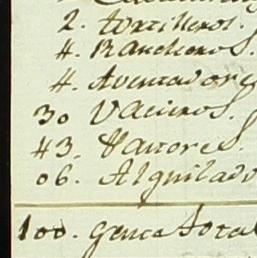 2. tortilleros.
4. Rancheros.
4. Aventadores
30 Vacieros.
43. Pastores.
06. Alquilado
100. gente total